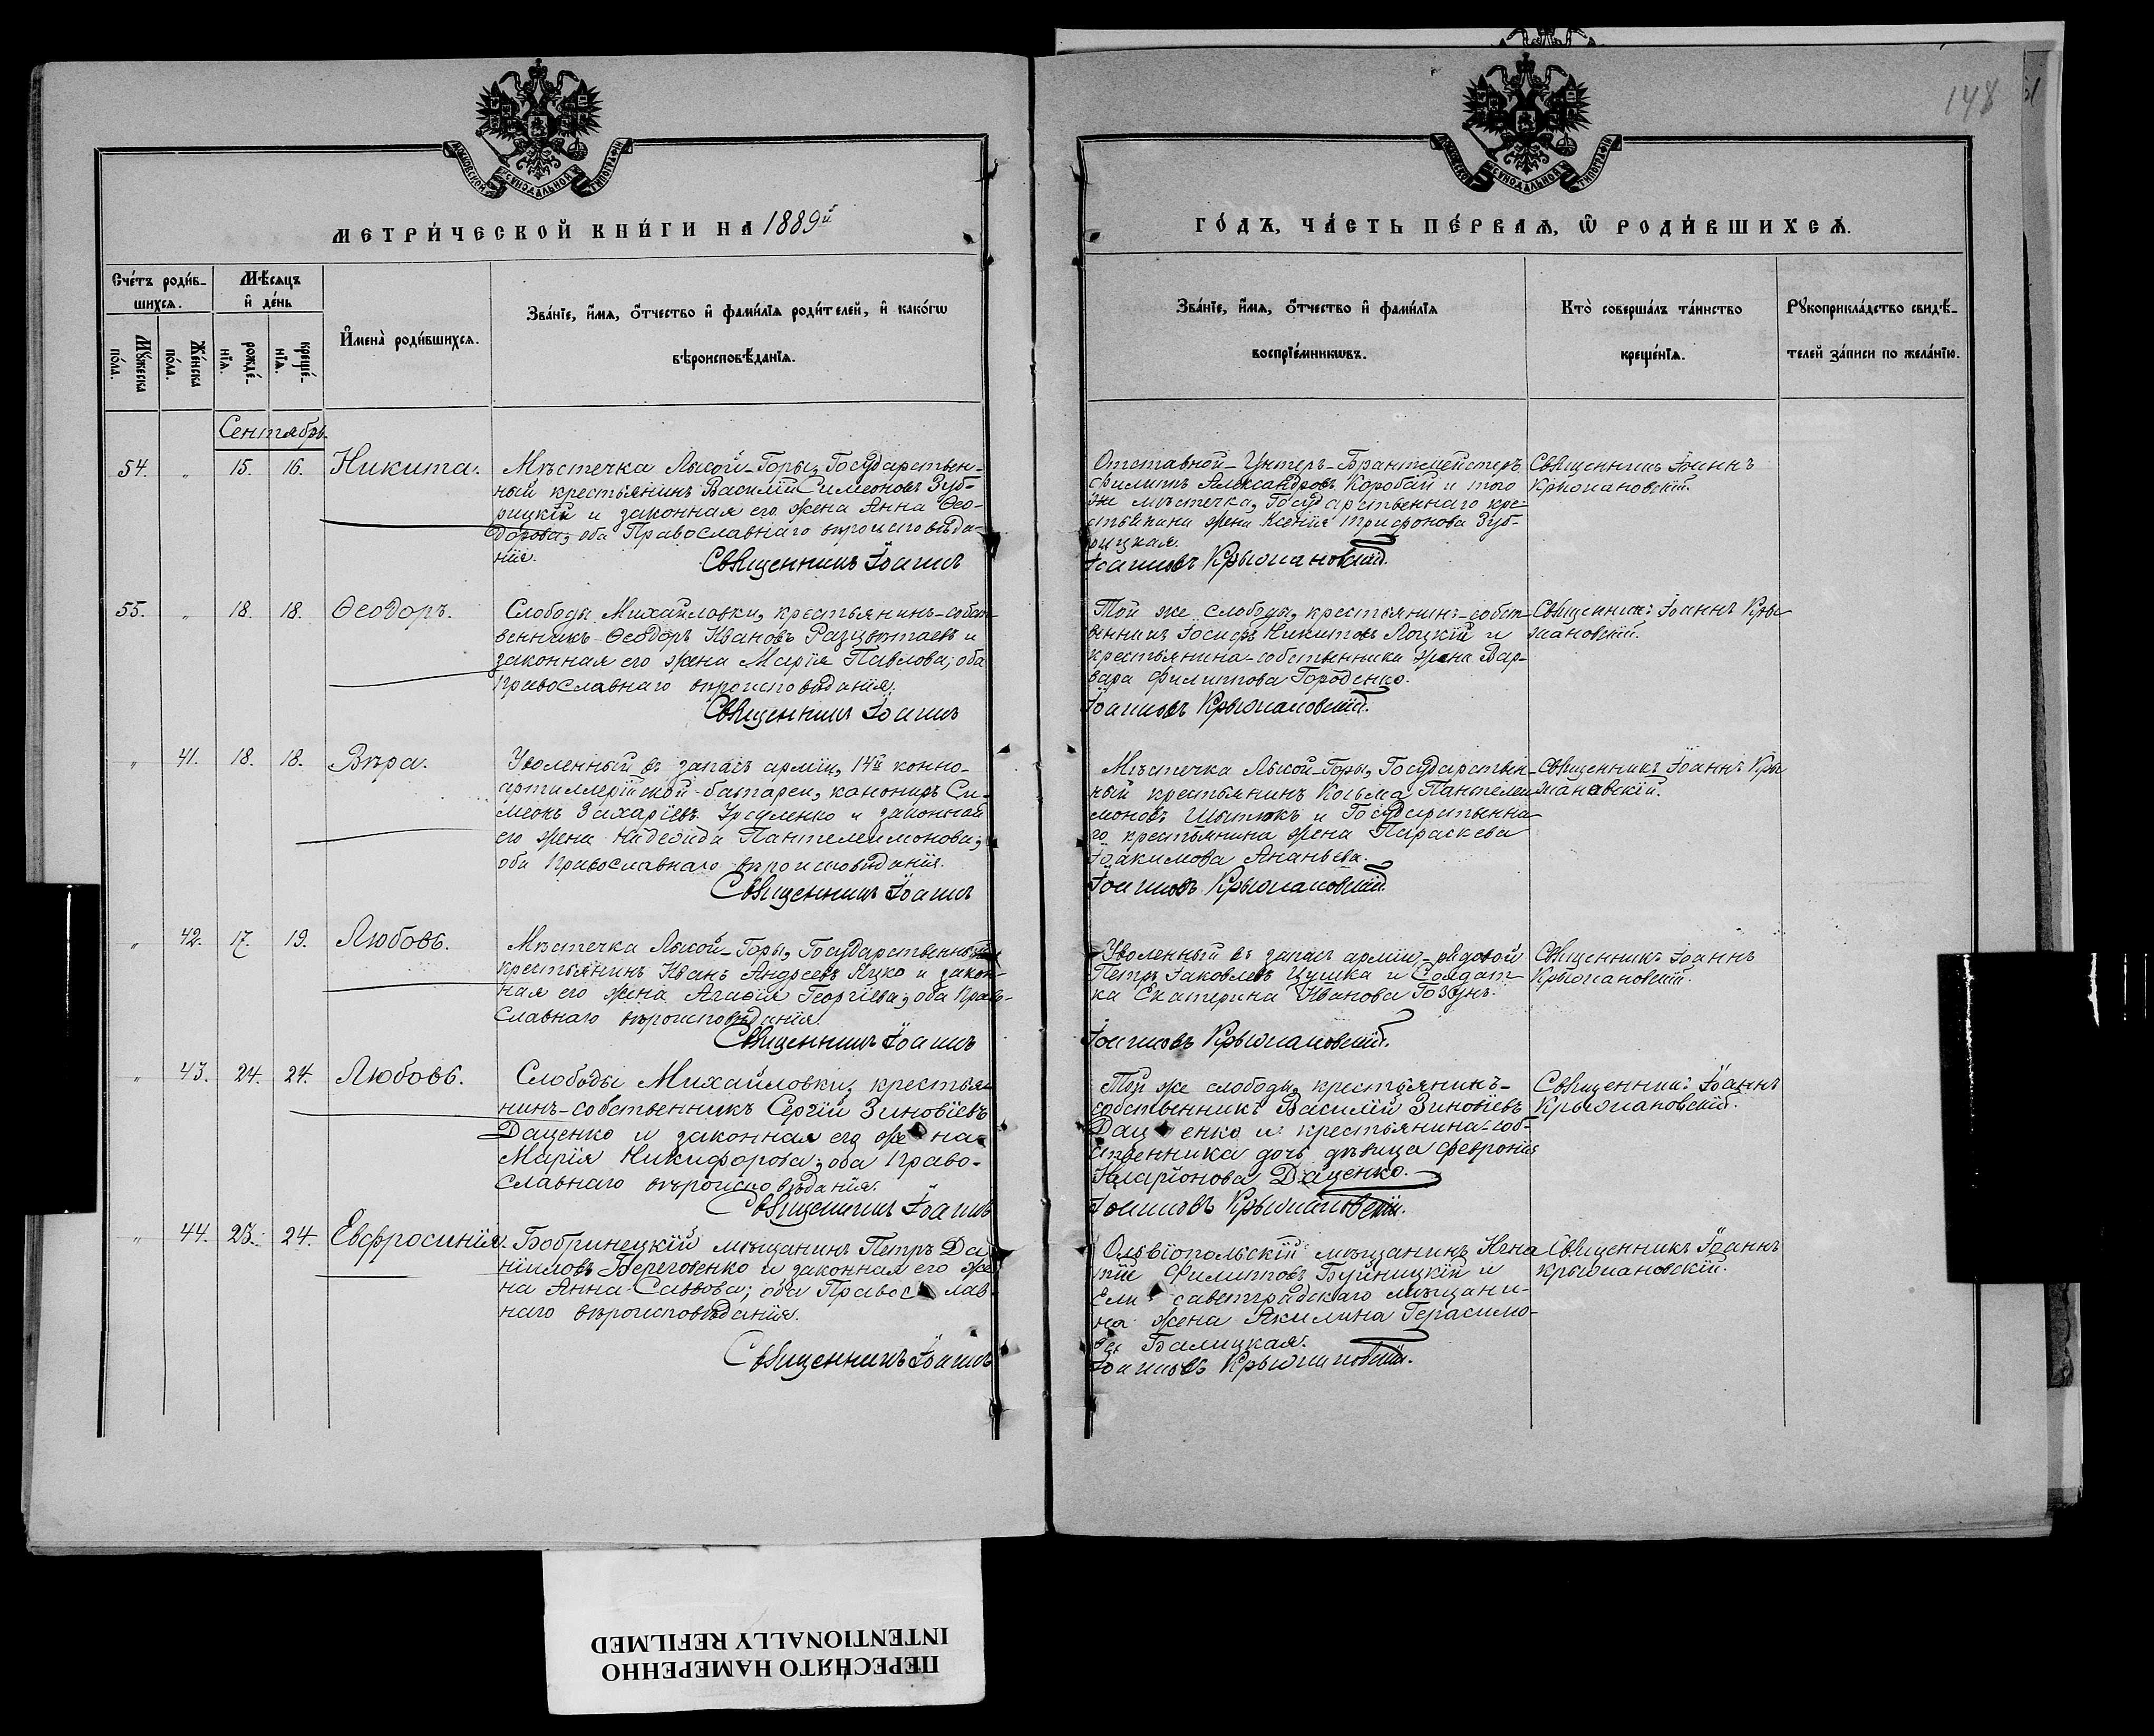 148
МОСКОВСКОЙ СѴНОДАЛЬНОЙ ТИПОГРАФІИ
МОСКОВСКОЙ СѴНОДАЛЬНОЙ ТИПОГРАФІИ
МЕТРИ́ЧЕСКОЙ КНИ́ГИ НА 1889й
ГО́ДЪ, ЧА́СТЬ ПЕ́РВАѦ, Ѽ РОДИ́ВШИХСѦ.
Сче́тъ роди́в-
шихсѧ.
Мѣ́сѧцъ
и҆ де́нь
Мꙋ́жеска
по́ла.
Же́нска
по́ла.
рожде́-
нїѧ.
креще́-
нїѧ.
И҆мена̀ роди́вшихсѧ.
Зва́нїе, и҆́мѧ, ѻ҆́тчество и҆ фами́лїѧ роди́телей, и҆ како́гѡ
вѣроисповѣ́данїѧ.
Зва́нїе, и҆́мѧ, ѻ҆́тчество и҆ фами́лїѧ
воспрїе́мникѡвъ.
Кто̀ соверша́лъ та́инство
креще́нїѧ.
Рꙋкоприкла́дство свидѣ́-
телей за́писи по жела́нїю.
Сентябрь.
54. „ 15. 16. Никита.
Мѣстечка Лысой-Горы, Государствен-
ный крестьянинъ Василій Симеоновъ Зуб-
рицкій и законная его жена Анна Ѳео-
дорова; оба Православнаго вѣроисповѣда-
нія.
Священникъ Іоаннъ
Отставной Унтеръ-Брантмейстеръ
Филиппъ Александровъ Коробай и того
же мѣстечка, Государственнаго кре-
стьянина жена Ксенія Трифонова Зуб-
рицкая.
Іоанновъ Крыжановскій.
Священникъ Іоаннъ
Крыжановскій.
55. „ 18. 18. Ѳеодоръ.
Слободы Михайловки, крестьянинъ-собст-
венникъ Ѳеодоръ Ивановъ Разцвѣтаевъ и
законная его жена Марія Павлова; оба
Православнаго вѣроисповѣданія.
Священникъ Іоаннъ
Той же слободы, крестьянинъ-собст-
венникъ Іосифъ Никитовъ Лоцкій и
крестьянина-собственника жена Вар-
вара Филиппова Городенко.
Іоанновъ Крыжановскій.
Священникъ Іоаннъ Кры-
жановскій.
„ 41. 18. 18. Вѣра.
Уволенный въ запасъ арміи, 14й конно-
артиллерійской батареи, канониръ Си-
меонъ Захаріевъ и законная
его жена Надежда Пантелеимонова;
оба Православнаго вѣроисповѣданія.
Священникъ Іоаннъ
Мѣстечка Лысой-Горы, Государствен-
ный крестьянинъ Косьма Пантелеи-
моновъ и Государственна-
го крестьянина жена Параскева
Іоакимова Ананьева.
Іоанновъ Крыжановскій.
Священникъ Іоаннъ Кры-
жановскій.
„ 42. 17. 19. Любовь.
Мѣстечка Лысой-Горы, Государственный
крестьянинъ Иванъ Андреевъ Яцко и закон-
ная его жена Агафія Георгіева; оба Право-
славнаго вѣроисповѣданія.
Священникъ Іоаннъ
Уволенный въ запасъ арміи, рядовой
Петръ Іаковлевъ Цушка и Солдат-
ка Екатерина Иванова Гозунъ.
Іоанновъ Крыжановскій.
Священникъ Іоаннъ
Крыжановскій.
„ 43. 24. 24. Любовь.
Слободы Михайловки, крестья-
нинъ-собственникъ Сергій Зиновіевъ
Даценко и законная его жена
Марія Никифорова; оба Право-
славнаго вѣроисповѣданія.
Священникъ Іоаннъ
Той же слободы, крестьянинъ-
собственникъ Василій Зиновіевъ
Даценко и крестьянина-соб-
ственника дочь дѣвица Феврония
Иларіонова Даценко.
Іоанновъ Крыжановскій.
Священникъ Іоаннъ
Крыжановскій.
„ 44. 23. 24. Евфросинія.
Бобринецкій мѣщанинъ Петръ Да-
ніиловъ Береговенко и законная его же-
на Анна Саввова; оба Православ-
наго вѣроисповѣданія.
Священникъ Іоаннъ
Ольвіопольскій мѣщанинъ Игна-
тій Филипповъ Буйницкій и
Елисаветградскаго мѣщани-
на жена Акилина Герасимо-
ва Балицкая.
Іоанновъ Крыжановскій.
Священникъ Іоаннъ
Крыжановскій.
ПЕРЕСНЯТО НАМЕРЕННО
INTENTIONALLY REFILMED